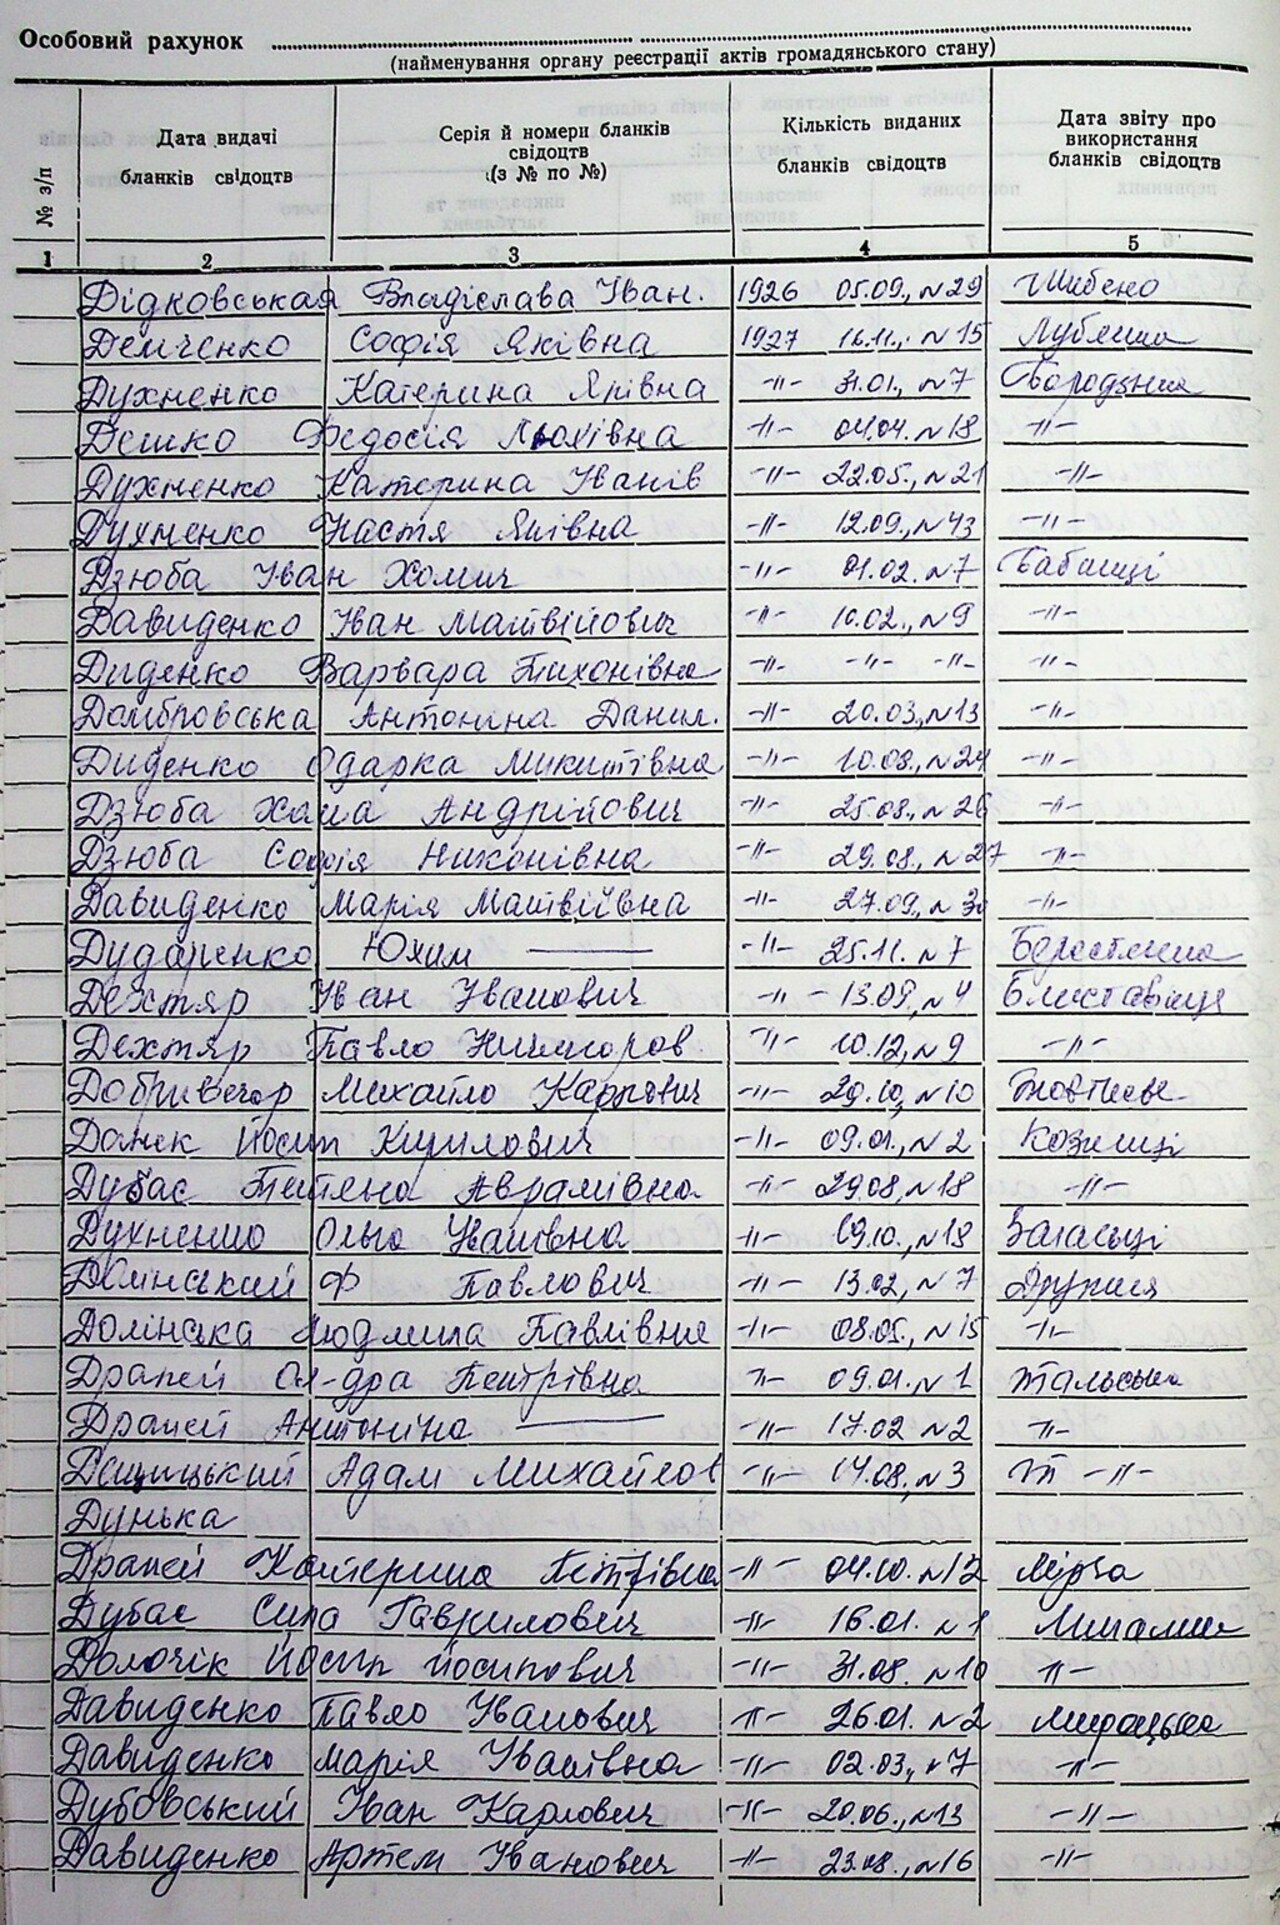 Особовий рахунок
(найменування органу реєстрації актів громадянського стану)
№ з/п
Дата видачі бланків свідоцтв
Серія й номери бланків свідоцтв (з № по №)
Кількість виданих бланків свідоцтв
Дата звіту про використання бланків свідоцтв
1 2 3 4 5
Дідковськая Владіслава Іван. 1926 05.09., №29 Шибено
Демченко Софія Яківна 1927 16.11., №15 Лубянка
Духненко Катерина Яківна -〃- 31.01., №7 Бородянка
Дешко Федосія -〃- 04.04. №18 -〃-
Духненко Катерина Іванів -〃- 22.05., №21 -〃-
Духненко Настя Яківна -〃- 12.09., №43 -〃-
Дзюба Іван Хомич -〃- 01.02. №7 Бабинці
Давиденко Іван Матвійович -〃- 10.02., №9 -〃-
Диденко Варвара Тихонівна -〃- -〃- -〃- -〃-
Домбровська Антоніна Данил. -〃- 20.03., №13 -〃-
Диденко Одарка Микитівна -〃- 10.08., №24 -〃-
Дзюба Хома Андрійович -〃- 25.08., №26 -〃-
Дзюба Софія Никонівна -〃- 29.08., №27 -〃-
Давиденко Марія Матвіївна -〃- 27.09., №30 -〃-
Дударенко Юхим — -〃- 25.11. №7 Берестянка
Дехтяр Іван Іванович -〃- 13.09., №4 Блиставиця
Дехтяр Павло Ничипоров. -〃- 10.12, №9 -〃-
Добривечор Михайло Карпович -〃- 29.10, №10
Данек Йосип Кирилович -〃- 09.01., №2 Козинці
Дубас Тетяна Аврамівна -〃- 29.08, №18 -〃-
Духненко Ольга Іванівна -〃- 19.10., №18 Загальці
Ф Павлович -〃- 13.02, №7 Дружня
Долінська Людмила Павлівна -〃- 08.05., №15 -〃-
Драпей Ол-дра Петрівна -〃- 09.01. №1 Жальська
Драпей Антоніна — -〃- 17.02 №2 -〃-
Адам Михайлов -〃- 14.08, №3 -〃-
Дунька
Драпей Катерина Петрівна -〃- 04.10. №12 Мірча
Дубас Сила Гаврилович -〃- 16.01. №1
Долочік Йосип Йосипович -〃- 31.08. №10 -〃-
Давиденко Павло Іванович -〃- 26.01. №2 Мироцька
Давиденко Марія Іванівна -〃- 02.03., №7 -〃-
Дубовський Іван Карлович -〃- 20.06., №13 -〃-
Давиденко Артем Іванович -〃- 23.08., №16 -〃-